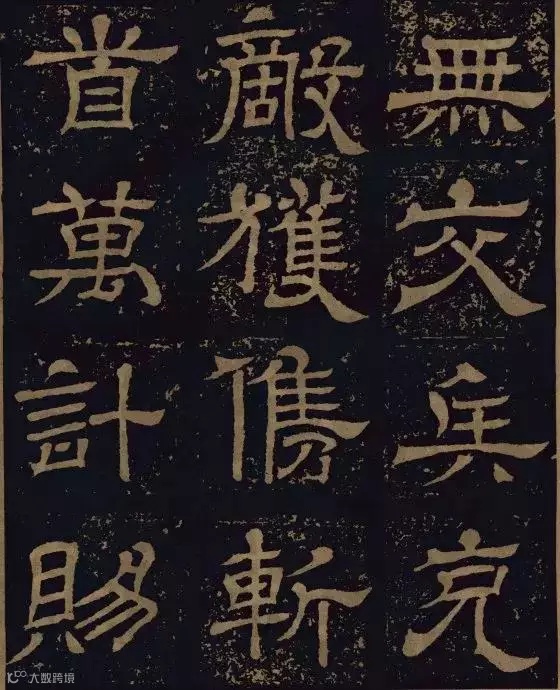 無交兵克
敵獲儁斬
首萬計賜
大数跨境